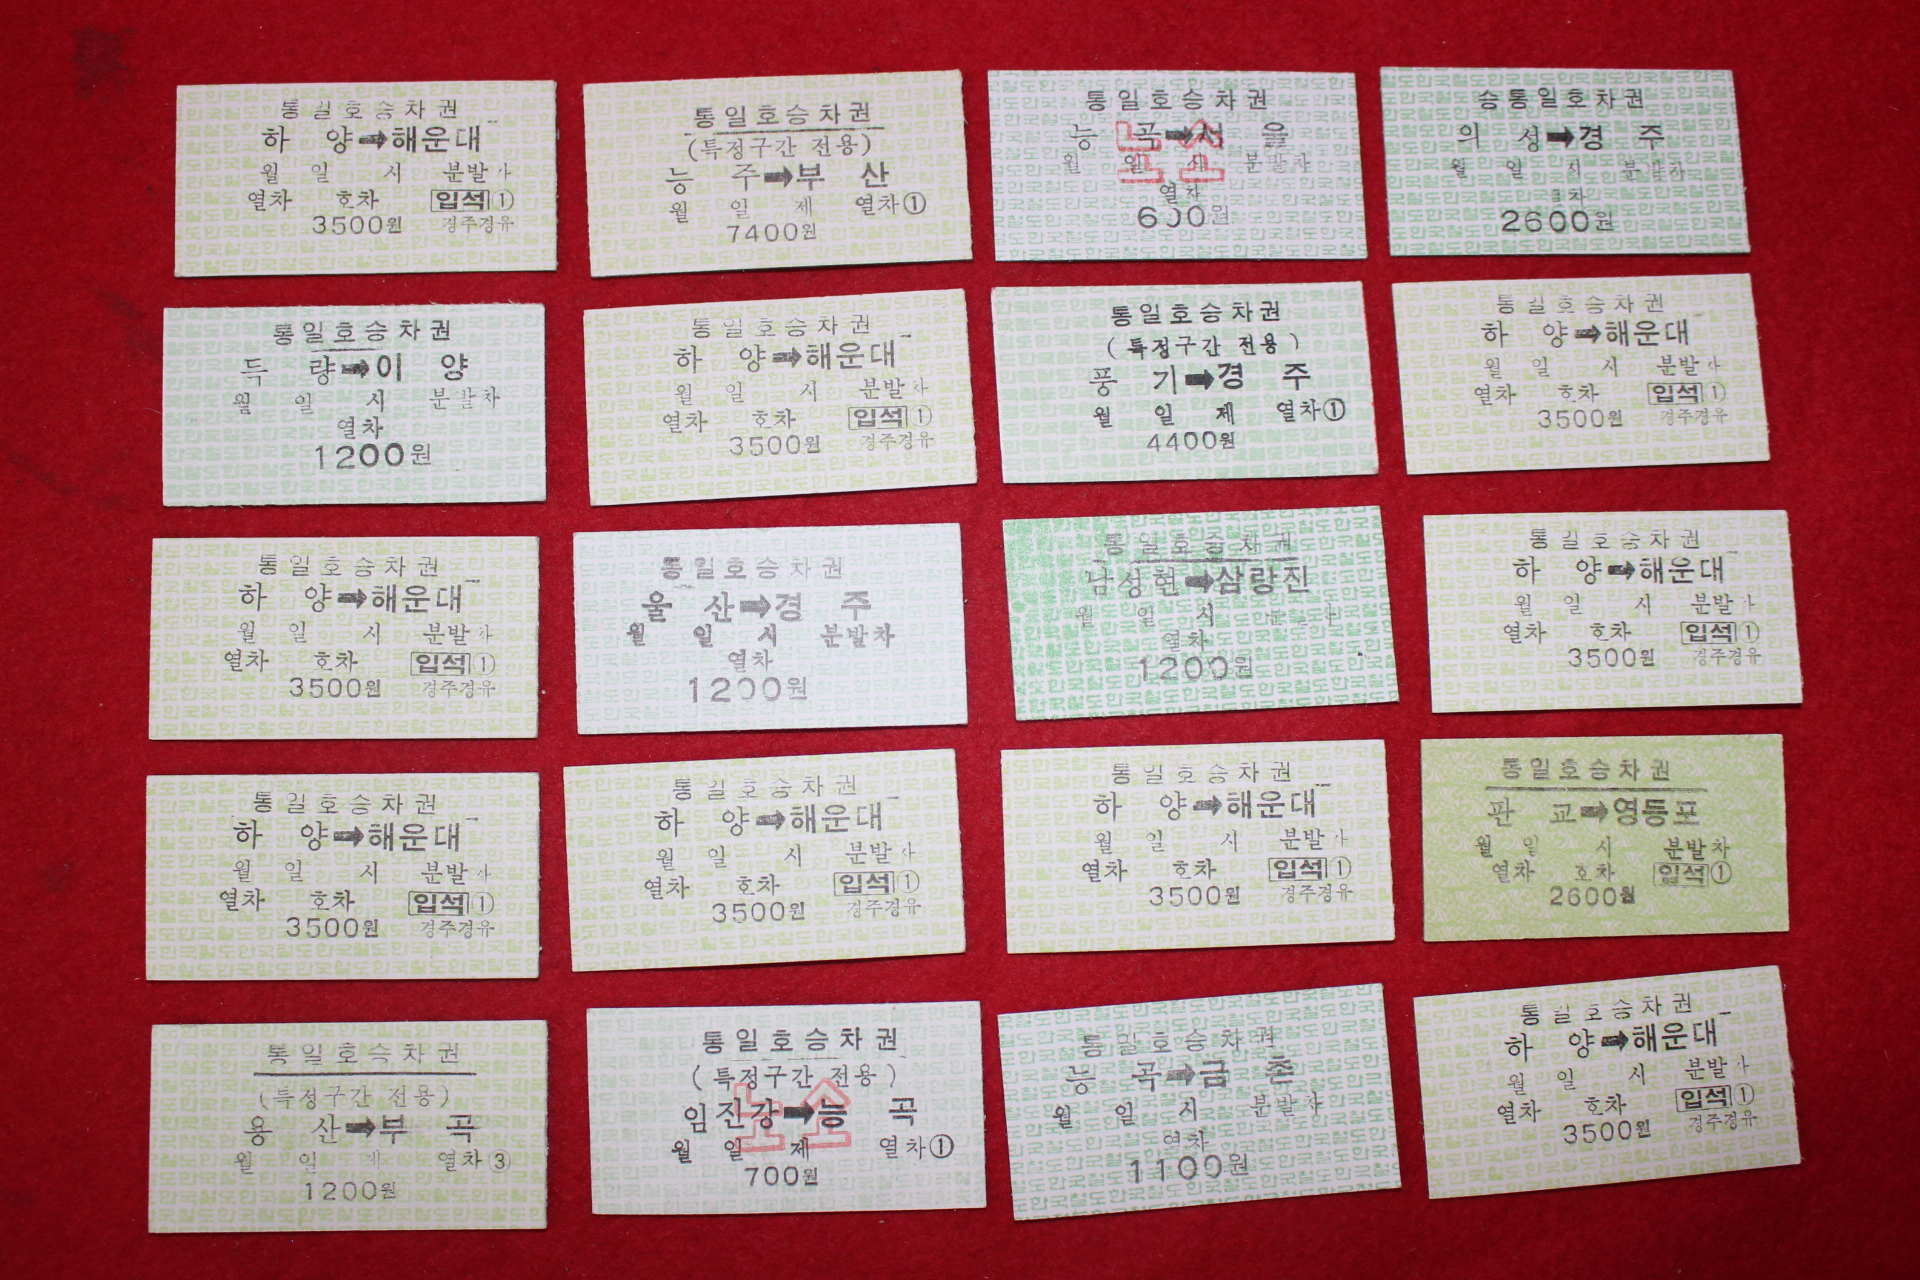 통일호승차권
하 양➡해운대
월 일 시 분발차
열차 호차 입석 ①
3500원 경주경유
통일호승차권
(특정구간 전용)
능 주➡부 산
월 일 제 열차①
7400원
통일호승차권
능 곡➡서 울
노소
월 일 시 분발차
열차
600원
승통일호차권
의 성➡경 주
월 일 시 분발차
2600원
통일호승차권
득 량➡이 양
월 일 시 분발차
열차
1200원
통일호승차권
하 양➡해운대
월 일 시 분발차
열차 호차 입석 ①
3500원 경주경유
통일호승차권
(특정구간 전용)
풍 기➡경 주
월 일 제 열차①
4400원
통일호승차권
하 양➡해운대
월 일 시 분발차
열차 호차 입석 ①
3500원 경주경유
통일호승차권
하 양➡해운대
월 일 시 분발차
열차 호차 입석 ①
3500원 경주경유
통일호승차권
울 산➡경 주
월 일 시 분발차
열차
1200원
통일호승차권
남성현➡삼랑진
월 일 시 분발차
열차
1200원
통일호승차권
하 양➡해운대
월 일 시 분발차
열차 호차 입석 ①
3500원 경주경유
통일호승차권
하 양➡해운대
월 일 시 분발차
열차 호차 입석 ①
3500원 경주경유
통일호승차권
하 양➡해운대
월 일 시 분발차
열차 호차 입석 ①
3500원 경주경유
통일호승차권
하 양➡해운대
월 일 시 분발차
열차 호차 입석 ①
3500원 경주경유
통일호승차권
판 교➡영등포
월 일 시 분발차
열차 호차 입석 ①
2600원
통일호승차권
(특정구간 전용)
용 산➡부 곡
월 일 제 열차③
1200원
통일호승차권
(특정구간 전용)
임진강➡능 곡
노소
월 일 제 열차①
700원
통일호승차권
능 곡➡금 촌
월 일 시 분발차
열차
1100원
통일호승차권
하 양➡해운대
월 일 시 분발차
열차 호차 입석 ①
3500원 경주경유